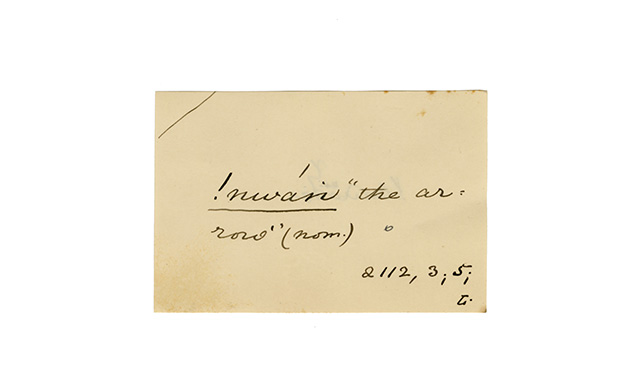 !nwáṅ "the ar=
row" (nom.)
2112, 3; 5;
L.